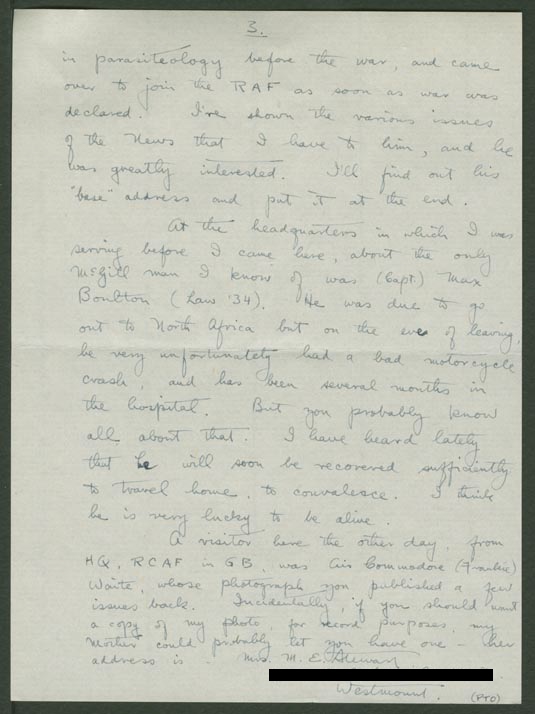 3.
in parasiteology before the war, and came
over to join the RAF as soon as war was
declared. I've shown the various issues
of the News that I have to him, and he
was greatly interested. I'll find out his
"base" address and put it at the end.
At the headquarters in which I was
serving before I came here, about the only
McGill man I know of was (Capt.) Max
Boulton (Law '34). He was due to go
out to North Africa but on the eve of leaving,
he very unfortunately had a bad motorcycle
crash, and has been several months in
the hospital. But you probably know
all about that. I have heard lately
that he will soon be recovered sufficiently
to travel home, to convalesce. I think
he is very lucky to be alive.
A visitor here the other day, from
HQ, RCAF in GB, was Air Commodore (Frankie)
Waite, whose photograph you published a few
issues back. Incidentally, if you should want
a copy of my photo, for record purposes, my
mother could probably let you have one - her
address is. Mrs. M. E. Stewart,
Westmount.
(PTO)